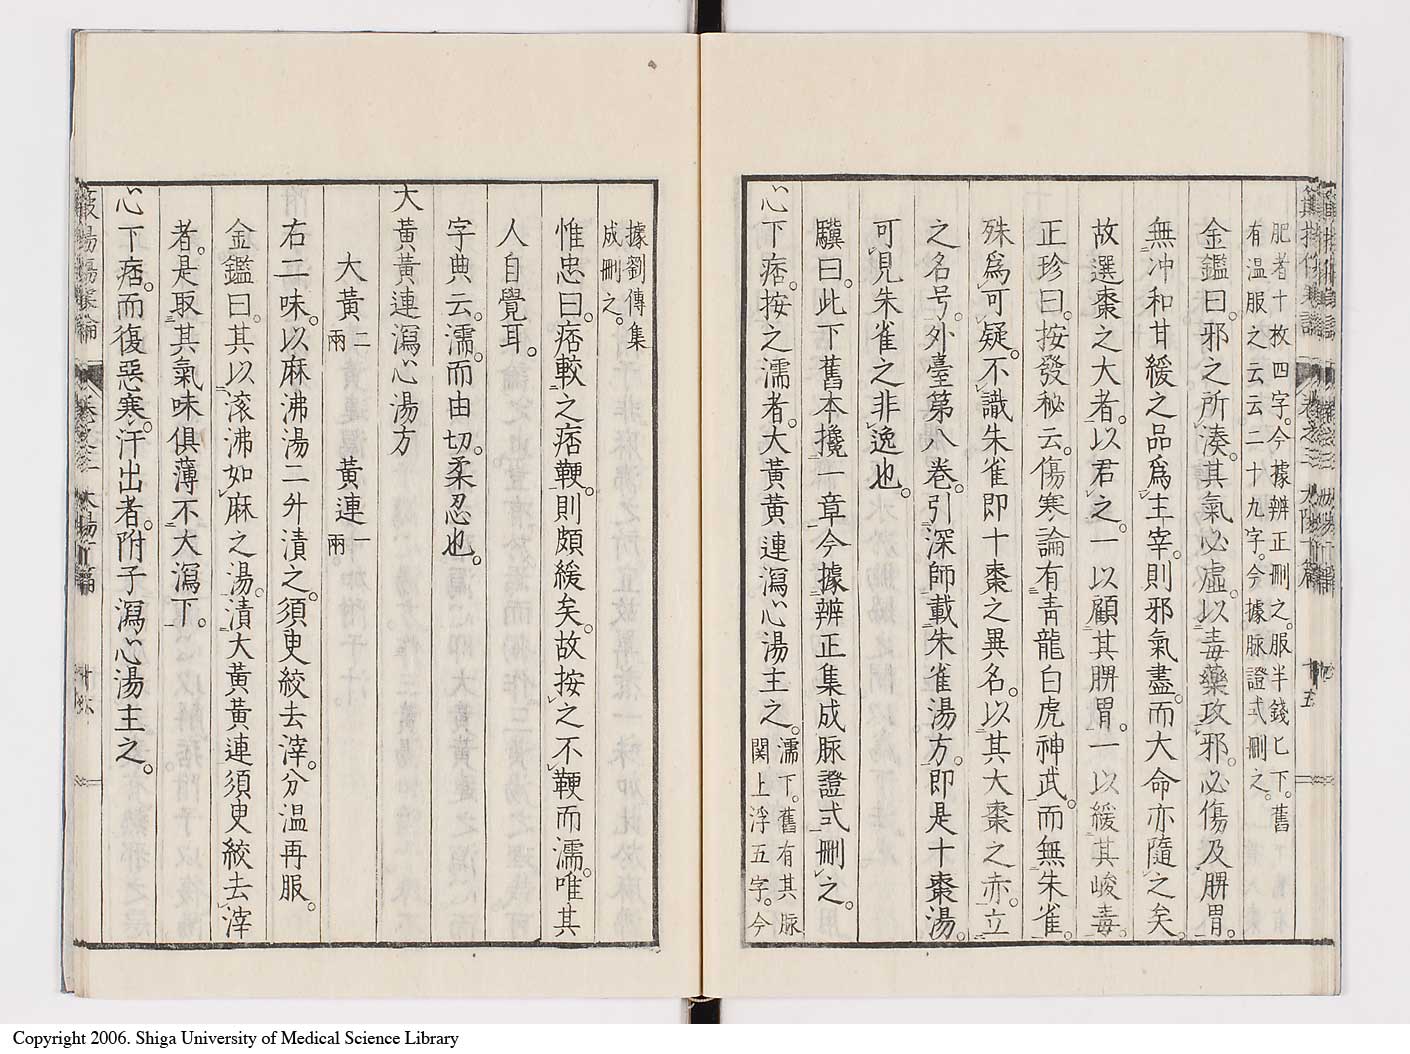 肥者十枚四字。今據辨正刪之。服半錢匕下。舊
有温服之云云二十九字。今據脈證式刪之。
金鑑曰。邪之所湊。其氣必虛。以毒藥攻邪。必傷及脾胃。
無冲和甘緩之品爲主宰。則邪氣盡。而大命亦隨之矣。
故選棗之大者。以君之。一以顧其脾胃。一以緩其峻毒。
正珍曰。按發秘云。傷寒論有青龍白虎神武。而無朱雀。
殊爲可疑。不識朱雀即十棗之異名。以其大棗之赤。立
之名号。外臺第八卷。引深師載朱雀湯方。即是十棗湯。
可見朱雀之非逸也。
驥曰。此下舊本攙一章今據辨正集成脈證式刪之。
心下痞。按之濡者。大黃黃連瀉心湯主之。
濡下。舊有其脈
関上浮五字。今
據劉傳集
成刪之。
惟忠曰。痞較之痞鞕。則頗緩矣。故按之不鞕而濡。唯其
人自覺耳。
字典云。濡。而由切。柔忍也。
大黃黃連瀉心湯方
大黃二兩 黃連一兩。
右二味。以麻沸湯二升漬之。須臾絞去滓。分温再服。
金鑑曰。其以滚沸如麻之湯。漬大黃黃連須臾絞去滓
者。是取其氣味俱薄不大瀉下。
心下痞。而復惡寒。汗出者。附子瀉心湯主之。